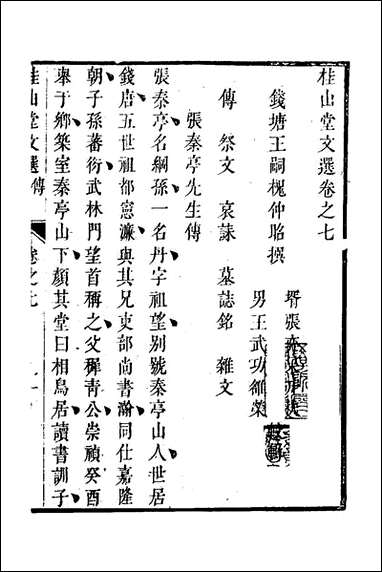 桂山堂文選卷之七
錢塘王嗣槐仲昭撰
壻張
男王武功維榮
傳　祭文　哀誄　墓誌銘　雜文
張秦亭先生傳
張秦亭名綱孫一名丹字祖望別號秦亭山人世居
錢唐五世祖都憲濂與其兄吏部尚書瀚同仕嘉隆
朝子孫蕃衍武林門望首稱之父穉青公崇禎癸酉
舉于鄉築室秦亭山下顏其堂曰相鳥居讀書訓子
桂山堂文選傳　卷之七　一